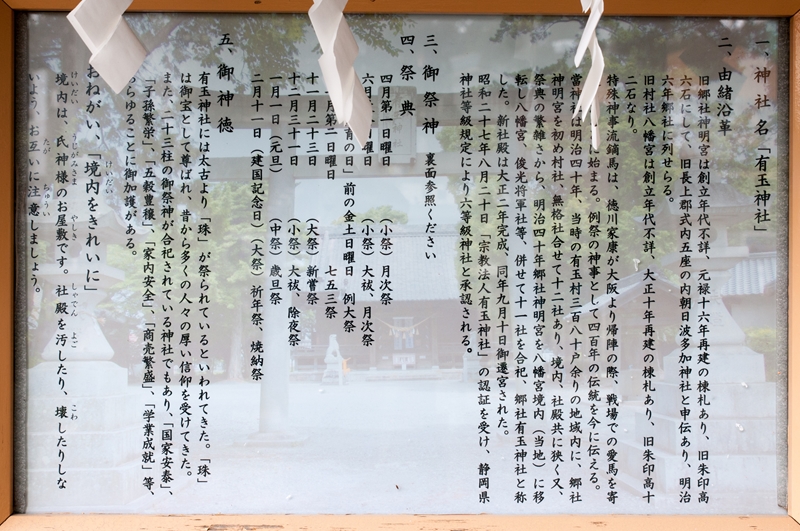 一、神社名「有玉神社」
二、由緒沿革
旧郷社神明宮は創立年代不詳、元禄十六年再建の棟札あり、旧朱印高
六石にして、旧長上郡式内五座の内朝日波多加神社と申伝あり、明治
六年郷社に列せらる。
旧村社八幡宮は創立年代不詳、大正十年再建の棟札あり、旧朱印高十
二石なり。
特殊神事流鏑馬は、徳川家康が大阪より帰陣の際、戦場での愛馬を寄
に始まる。例祭の神事として四百年の伝統を今に伝える。
當神社は明治四十年、当時の有玉村三百八十戸余りの地域内に、郷社
神明宮を初め村社、無格社合せて十二社あり、境内、社殿共に狭く又、
祭典の繁雑さから、明治四十年郷社神明宮を八幡宮境内（当地）に移
転し八幡宮、俊光将軍社等、併せて十一社を合祀、郷社有玉神社と称
した。新社殿は大正二年完成、同年九月十日御遷宮された。
昭和二十七年八月二十日「宗教法人有玉神社」の認証を受け、静岡県
神社等級規定により六等級神社と承認される。
三、御祭神 裏面参照ください
四、祭典
四月第一日曜日 （小祭）月次祭
六月 日曜日 （小祭）大祓、月次祭
の日」前の金土日曜日 例大祭
月第二日曜日 七五三祭
十一月二十三日 （大祭）新嘗祭
十二月三十一日 （小祭）大祓、除夜祭
一月一日（元旦） （中祭）歳旦祭
二月十一日（建国記念日）（大祭）祈年祭、焼納祭
五、御神徳
有玉神社には太古より「珠」が祭られているといわれてきた。「珠」
は御宝として尊ばれ、昔から多くの人々の厚い信仰を受けてきた。
また、二十三柱の御祭神が合祀されている神社でもあり、「国家安泰」、
「子孫繁栄」、「五穀豊穣」、「家内安全」、「商売繁盛」、「学業成就」等、
らゆることに御加護がある。
おねがい、「境内をきれいに」
境内は、氏神様のお屋敷です。社殿を汚したり、壊したりしな
いよう、お互いに注意しましょう。